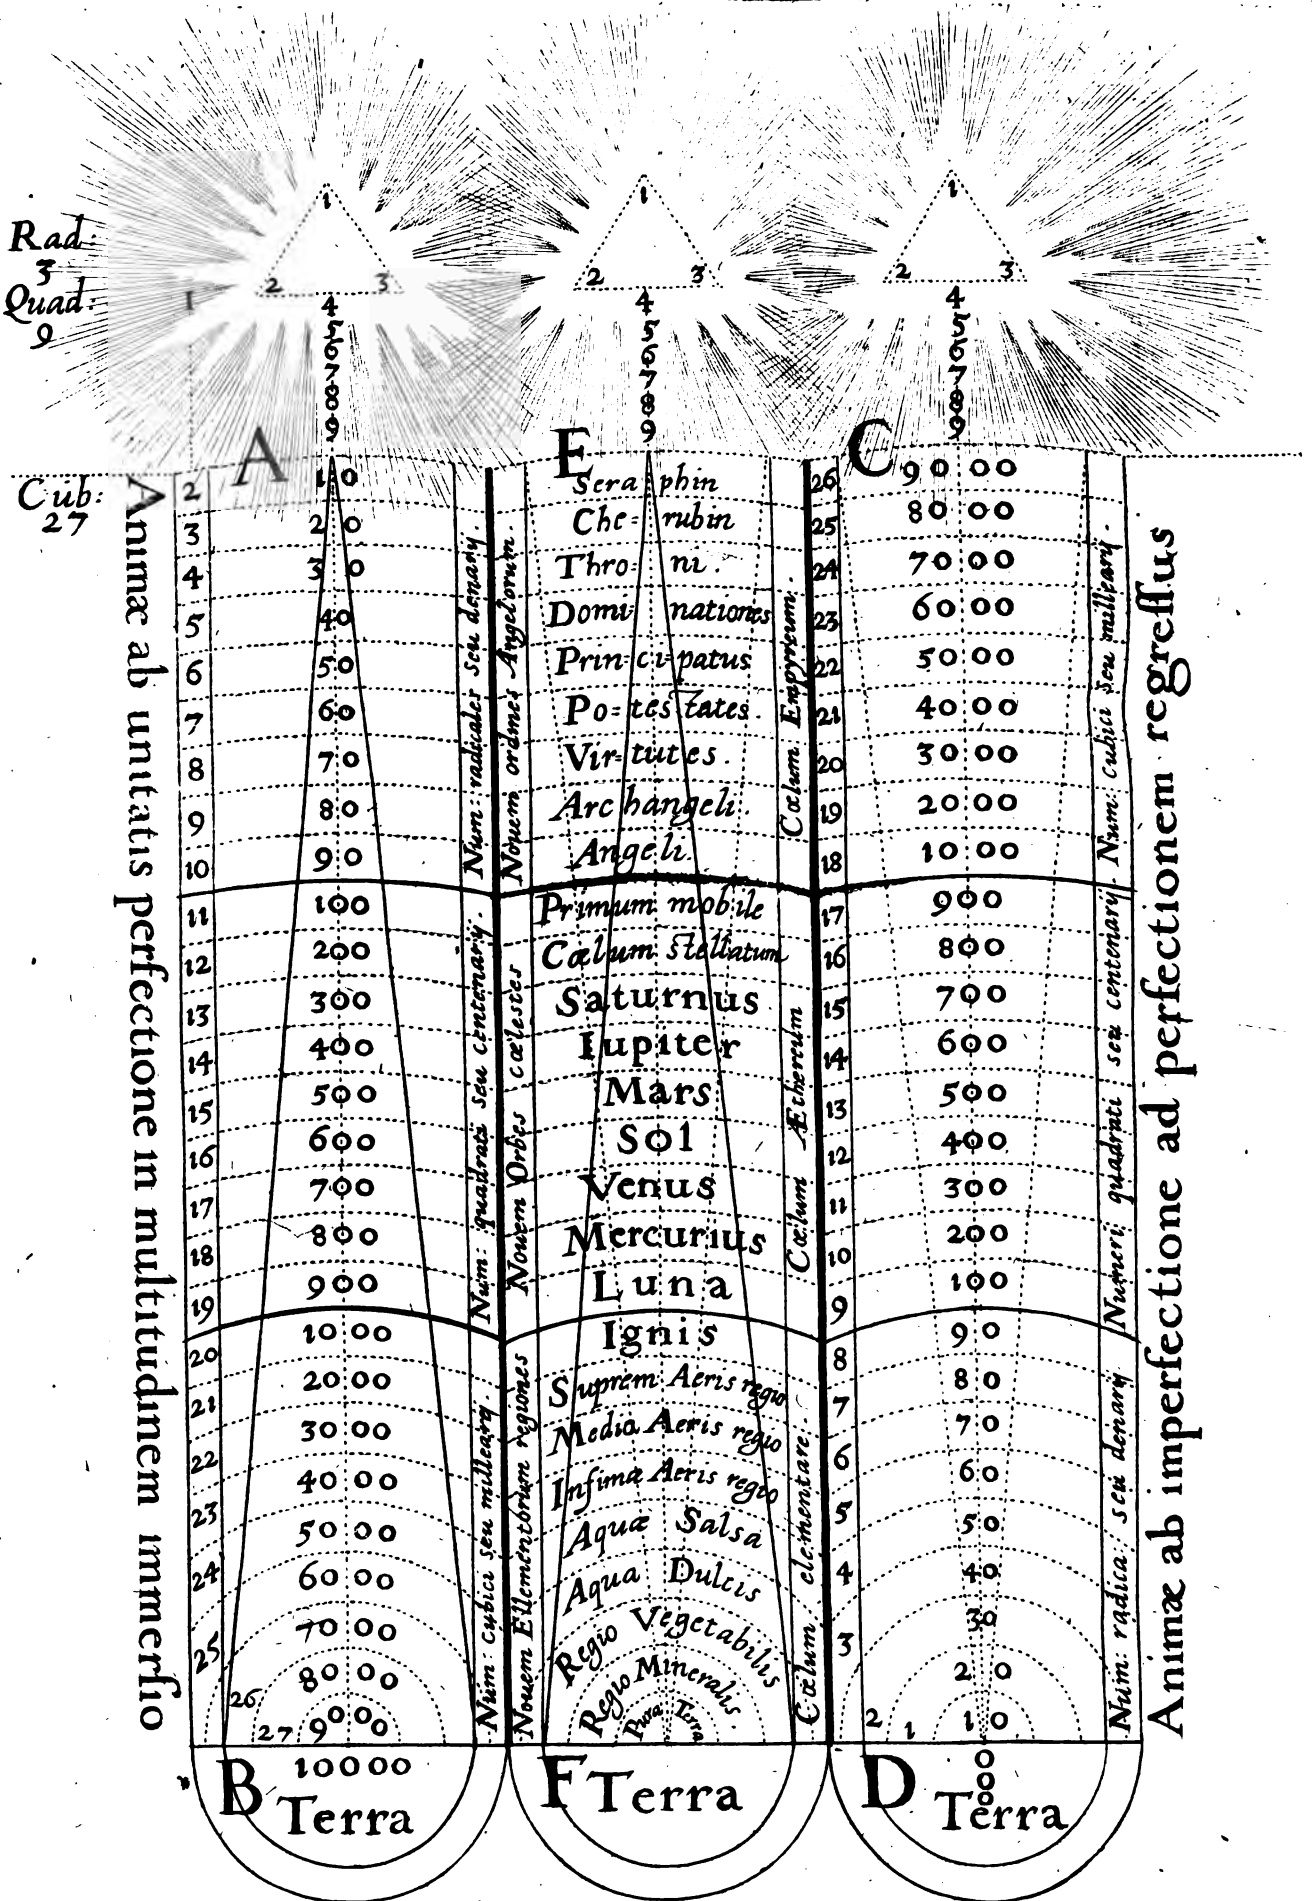 Rad:
3
Quad:
9
Cub:
27
1
2 3
4
5
6
7
8
9
1
2 3
4
5
6
7
8
9
1
2 3
4
5
6
7
8
9
1
A
E
C
Animæ ab unitatis perfectione in multitudinem immersio
2 10
3 20
4 30
5 40
6 50
7 60
8 70
9 80
10 90
11 100
12 200
13 300
14 400
15 500
16 600
17 700
18 800
19 900
20 10 00
21 20 00
22 30 00
23 40 00
24 50 00
60 00
25 70 00
26 80 00
27 90 00
B 10000
Terra
Num: radicales seu denarij.
Num: quadrata seu centenarij.
Num: cubici seu millearij.
Nouem ordines Angelorum.
Nouem Orbes cælestes
Nouem Ellementorum regiones
Sera phin
Che= rubin
Thro= ni.
Domi nationes
Prin=ci=patus
Po=tes tates.
Vir=tutes.
Archangeli.
Angeli.
Primum mobile
Cælum Stellatum
Saturnus
Iupiter
Mars
Sol
Venus
Mercurius
Luna
Ignis
Suprem: Aeris regio
Media Aeris regio
Infima Aeris regio
Aquæ Salsa
Aqua Dulcis
Regio Vegetabilis
Regio Mineralis.
Pura Terra
F Terra
Cælum Empyreum.
Cœlum Æthereum
Cœlum elementare.
26 90 00
25 80 00
24 70 00
23 60 00
22 50 00
21 40 00
20 30 00
19 20 00
18 10 00
17 900
16 800
15 700
14 600
13 500
12 400
11 300
10 200
9 100
8 90
7 80
6 70
5 60
4 50
40
3 30
2 20
1 10
0
0
0
D Terra
Num: cubici seu millearij.
Numeri quadrati seu centenarij.
Num: radica: seu denarij
Animæ ab imperfectione ad perfectionem regressus